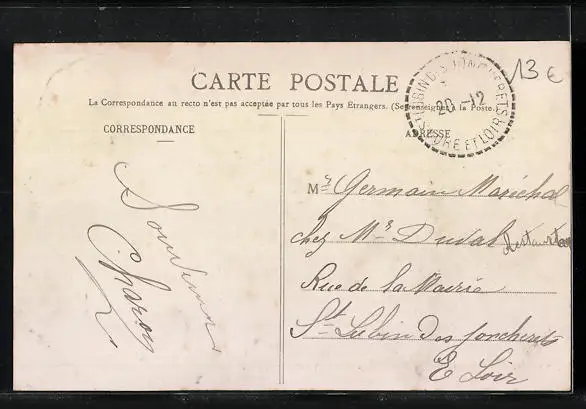 CARTE POSTALE
La Correspondance au recto n'est pas acceptée par tous les Pays Etrangers. (Se renseigner à la Poste.)
CORRESPONDANCE
ADRESSE
20 -12
EURE ET LOIR
13 €
Souvenir
Charon
Mr Germain Maréchal
chez Mr Duval Restaurateur
Rue de la Mairie
St Lubin des Joncherets
E Loir